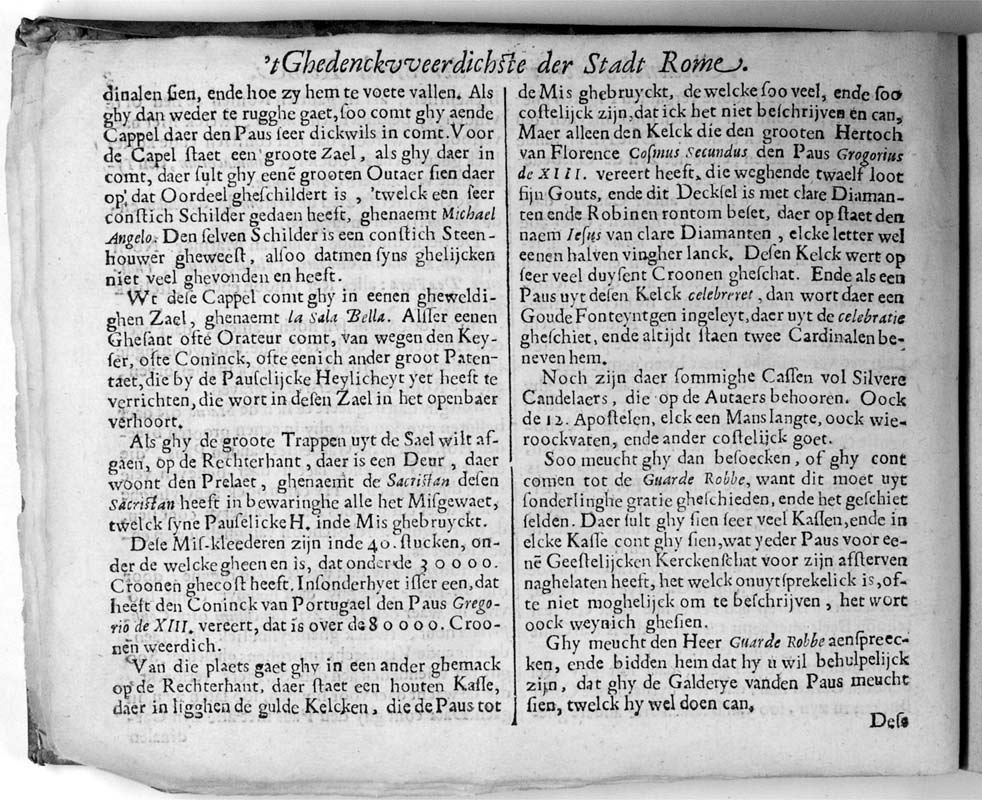 'tGhedenckvveerdichſte der Stadt Rome.
dinalen ſien, ende hoe zy hem te voete vallen. Als
ghy dan weder te rugghe gaet, ſoo comt ghy aende
Cappel daer den Paus ſeer dickwils in comt. Voor
de Capel ſtaet een groote Zael, als ghy daer in
comt, daer ſult ghy eenē grooten Outaer ſien daer
op dat Oordeel gheſchildert is, 'twelck een ſeer
conſtich Schilder gedaen heeft, ghenaemt Michael
Angelo. Den ſelven Schilder is een conſtich Steen-
houwer gheweeſt, alſoo datmen ſyns ghelijcken
niet veel ghevonden en heeft.
Wt deſe Cappel comt ghy in eenen gheweldi-
ghen Zael, ghenaemt la Sala Bella. Alſſer eenen
Gheſant ofte Orateur comt, van wegen den Key-
ſer, ofte Coninck, ofte eenich ander groot Paten-
taet, die by de Pauſelijcke Heylicheyt yet heeft te
verrichten, die wort in deſen Zael in het openbaer
verhoort.
Als ghy de groote Trappen uyt de Sael wilt af-
gaen, op de Rechterhant, daer is een Deur, daer
woont den Prelaet, ghenaemt de Sacriſtan deſen
Sacriſtan heeft in bewaringhe alle het Miſgewaet,
twelck ſyne Pauſelicke H. inde Mis ghebruyckt.
Deſe Miſ-kleederen zijn inde 40. ſtucken, on-
der de welcke gheen en is, dat onder de 30000.
Croonen ghecoſt heeft. Inſonderhyet iſſer een, dat
heeft den Coninck van Portugael den Paus Grego-
rio de XIII. vereert, dat is over de 80000. Croo-
nen weerdich.
Van die plaets gaet ghy in een ander ghemack
op de Rechterhant, daer ſtaet een houten Kaſſe,
daer in ligghen de gulde Kelcken, die de Paus tot
de Mis ghebruyckt, de welcke ſoo veel, ende ſoo
coſtelijck zijn, dat ick het niet beſchrijven en can,
Maer alleen den Kelck die den grooten Hertoch
van Florence Coſmus Secundus den Paus Grogorius
de XIII. vereert heeft, die weghende twaelf loot
fijn Gouts, ende dit Deckſel is met clare Diaman-
ten ende Robinen rontom beſet, daer op ſtaet den
naem Ieſus van clare Diamanten, elcke letter wel
eenen halven vingher lanck. Deſen Kelck wert op
ſeer veel duyſent Croonen gheſchat. Ende als een
Paus uyt deſen Kelck celebreret, dan wort daer een
Goude Fonteyntgen ingeleyt, daer uyt de celebratie
gheſchiet, ende altijdt ſtaen twee Cardinalen be-
neven hem.
Noch zijn daer ſommighe Caſſen vol Silvere
Candelaers, die op de Autaers behooren. Oock
de 12. Apoſtelen, elck een Mans langte, oock wie-
roockvaten, ende ander coſtelijck goet.
Soo meucht ghy dan beſoecken, of ghy cont
comen tot de Guarde Robbe, want dit moet uyt
ſonderlinghe gratie gheſchieden, ende het geſchiet
ſelden. Daer ſult ghy ſien ſeer veel Kaſſen, ende in
elcke Kaſſe cont ghy ſien, wat yeder Paus voor ee-
nē Geeſtelijcken Kerckenſchat voor zijn afſterven
naghelaten heeft, het welck onuytſprekelick is, of-
te niet moghelijck om te beſchrijven, het wort
oock weynich gheſien.
Ghy meucht den Heer Guarde Robbe aenſpreec-
ken, ende bidden hem dat hy u wil behulpelijck
zijn, dat ghy de Galderye vanden Paus meucht
ſien, twelck hy wel doen can.
Deſe